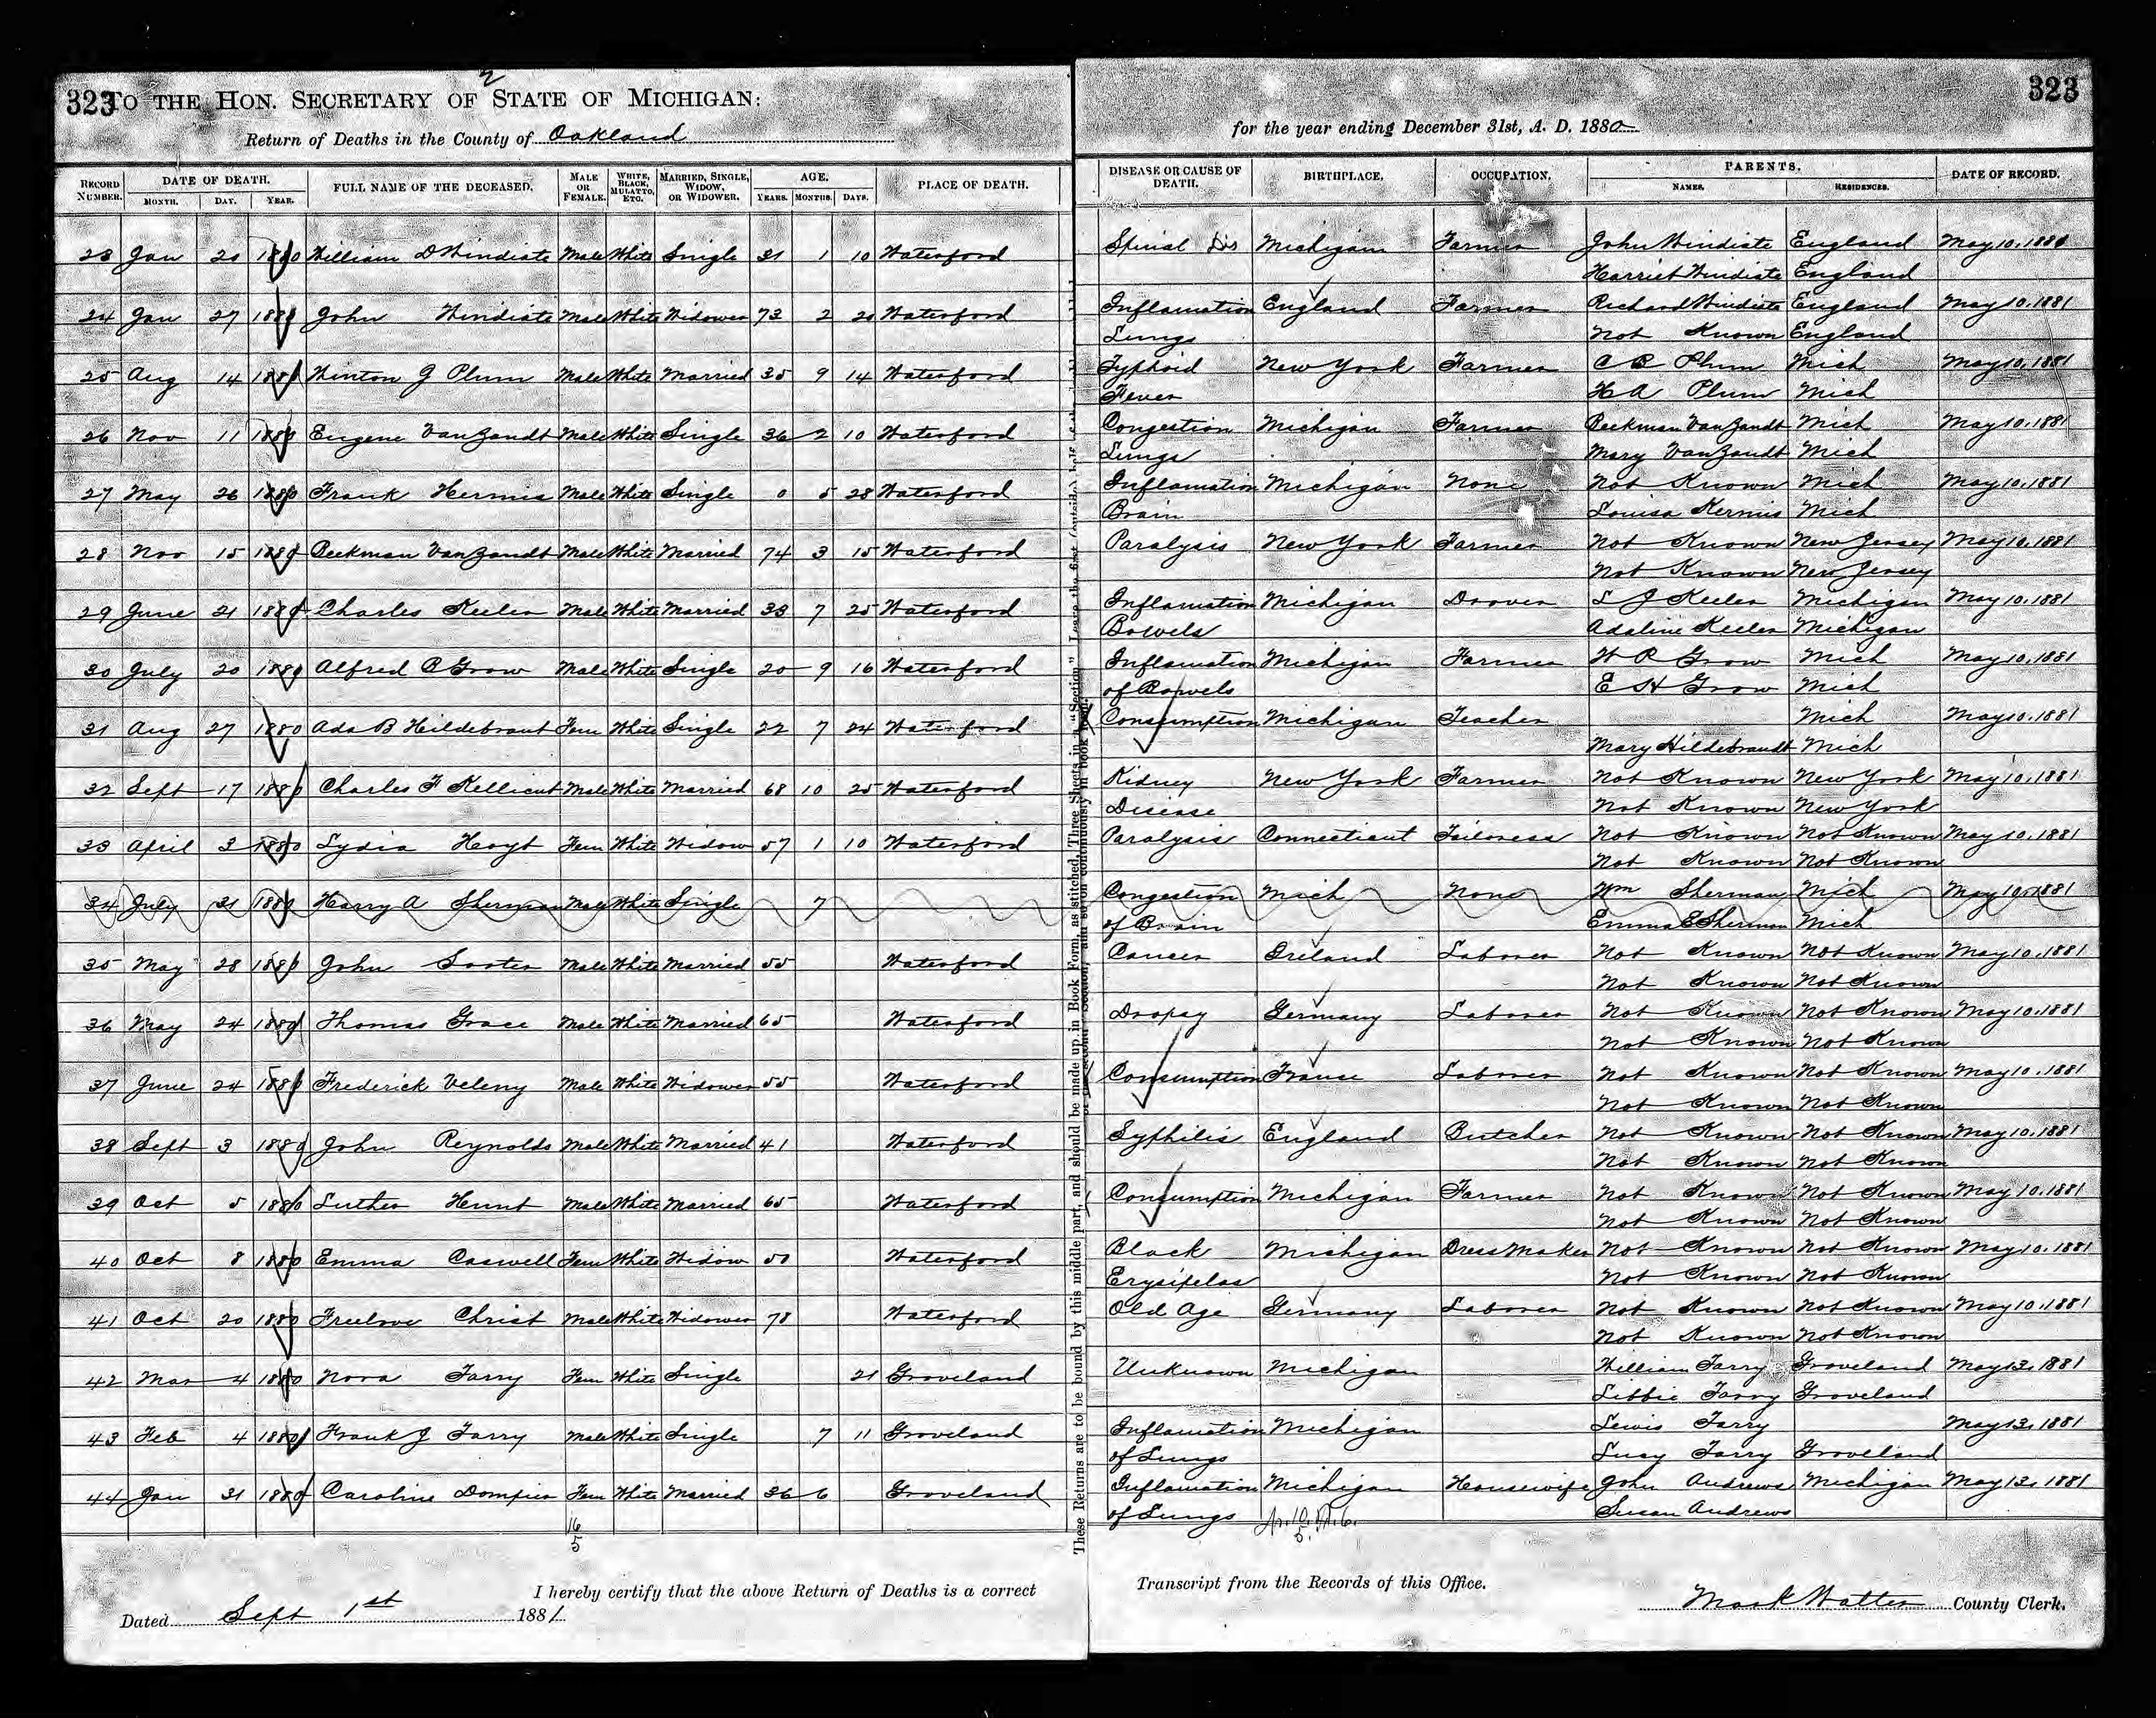 323 TO THE HON. SECRETARY OF STATE OF MICHIGAN: 323
Return of Deaths in the County of Oakland for the year ending December 31st, A. D. 1880
RECORD NUMBER. DATE OF DEATH. MONTH. DAY. YEAR. FULL NAME OF THE DECEASED. MALE OR FEMALE. WHITE, BLACK, MULATTO, ETC. MARRIED, SINGLE, WIDOW, OR WIDOWER. AGE. YEARS. MONTHS. DAYS. PLACE OF DEATH. DISEASE OR CAUSE OF DEATH. BIRTHPLACE. OCCUPATION. PARENTS. NAMES. RESIDENCES. DATE OF RECORD.
23 Jan 20 1880 William D Windiate Male White Single 31 1 10 Waterford Spinal Dis Michigan Farmer John Windiate England May 10, 1881
Harriet Windiate England
24 Jan 27 1880 John Windiate Male White Widower 73 2 20 Waterford Inflamation England Farmer Richard Windiate England May 10, 1881
Lungs Not Known England
25 Aug 14 1880 Winton J Plum Male White Married 35 9 14 Waterford Typhoid New York Farmer C B Plum Mich May 10, 1881
Fever H A Plum Mich
26 Nov 11 1880 Eugene VanZandt Male White Single 36 2 10 Waterford Congestion Michigan Farmer Beekman VanZandt Mich May 10, 1881
Lungs Mary VanZandt Mich
27 May 26 1880 Frank Hermis Male White Single 0 5 28 Waterford Inflamation Michigan None Not Known Mich May 10, 1881
Brain Louisa Kermis Mich
28 Nov 15 1880 Beekman VanZandt Male White Married 74 3 15 Waterford Paralysis New York Farmer Not Known New Jersey May 10, 1881
Not Known New Jersey
29 June 21 1880 Charles Keeler Male White Married 33 7 25 Waterford Inflamation Michigan Drover S J Keeler Michigan May 10, 1881
Bowels Adaline Keeler Michigan
30 July 20 1880 Alfred B Grow Male White Single 20 9 16 Waterford Inflamation Michigan Farmer W R Grow Mich May 10, 1881
of Bowels E H Grow Mich
31 Aug 27 1880 Ada B Hildebrant Fem White Single 22 7 24 Waterford Consumption Michigan Teacher Mich May 10, 1881
Mary Hildebrandt Mich
32 Sept 17 1880 Charles F Kellicut Male White Married 68 10 25 Waterford Kidney New York Farmer Not Known New York May 10, 1881
Disease Not Known New York
33 April 3 1880 Lydia Hoyt Fem White Widow 57 1 10 Waterford Paralysis Connecticut Tailoress Not Known Not Known May 10, 1881
Not Known Not Known
34 July 31 1880 Harry A Sherman Male White Single 7 Congestion Mich None Wm Sherman Mich May 10, 1881
of Brain Emma E Sherman Mich
35 May 28 1880 John Male White Married 55 Waterford Cancer Ireland Laborer Not Known Not Known May 10, 1881
Not Known Not Known
36 May 24 1880 Thomas Grace Male White Married 65 Waterford Dropsy Germany Laborer Not Known Not Known May 10, 1881
Not Known Not Known
37 June 24 1880 Frederick Veleny Male White Widower 55 Waterford Consumption France Laborer Not Known Not Known May 10, 1881
Not Known Not Known
38 Sept 3 1880 John Reynolds Male White Married 41 Waterford Syphilis England Butcher Not Known Not Known May 10, 1881
Not Known Not Known
39 Oct 5 1880 Luther Hunt Male White Married 65 Waterford Consumption Michigan Farmer Not Known Not Known May 10, 1881
Not Known Not Known
40 Oct 8 1880 Emma Caswell Fem White Widow 50 Waterford Black Michigan Dress Maker Not Known Not Known May 10, 1881
Erysipelas Not Known Not Known
41 Oct 20 1880 Freelove Christ Male White Widower 78 Waterford Old Age Germany Laborer Not Known Not Known May 10, 1881
Not Known Not Known
42 Mar 4 1880 Nora Farry Fem White Single 21 Groveland Unknown Michigan William Farry Groveland May 13, 1881
Libbie Farry Groveland
43 Feb 4 1880 Frank J Farry Male White Single 7 11 Groveland Inflamation Michigan Lewis Farry May 13, 1881
of Lungs Lucy Farry Groveland
44 Jan 31 1880 Caroline Dompier Fem White Married 36 6 Groveland Inflamation Michigan Housewife John Andrews Michigan May 13, 1881
of Lungs Susan Andrews
16
5
I hereby certify that the above Return of Deaths is a correct Transcript from the Records of this Office.
Dated Sept 1st 1881. Mark Walter County Clerk.